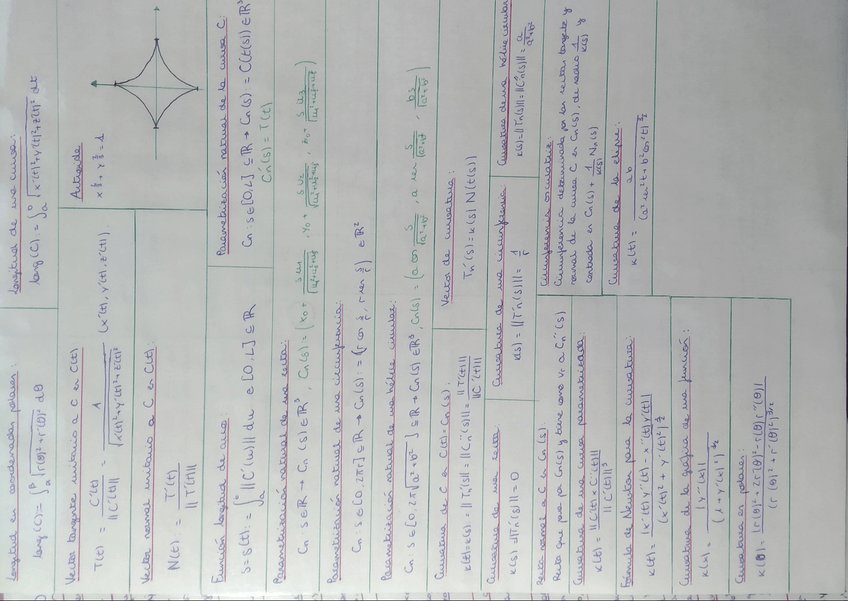 Longitud en coordenadas polares:
long(C) = ∫_α^β √(r(θ)² + r'(θ)²) dθ
Longitud de una curva:
long(C) = ∫_a^b √(x'(t)² + y'(t)² + z'(t)²) dt
Vector tangente unitario a C en C(t)
T(t) = C'(t) / ||C'(t)|| = 1 / √(x'(t)² + y'(t)² + z'(t)²) (x'(t), y'(t), z'(t))
Vector normal unitario a C en C(t)
N(t) = T'(t) / ||T'(t)||
Astroide
x^(2/3) + y^(2/3) = 1
Función longitud de arco:
s = s(t) := ∫_a^t ||C'(u)|| du ∈ [0, L] ⊆ ℝ
Parametrización natural de la curva C:
Cn : s ∈ [0, L] ⊆ ℝ → Cn(s) = C(t(s)) ∈ ℝ³
Cn'(s) = T(t)
Parametrización natural de una recta:
Cn s ∈ ℝ → Cn(s) ∈ ℝ³, Cn(s) = (x0 + s u1 / √(u1² + u2² + u3²), y0 + s u2 / √(u1² + u2² + u3²), z0 + s u3 / √(u1² + u2² + u3²))
Parametrización natural de una circunferencia:
Cn s ∈ [0, 2πr] ⊆ ℝ → Cn(s) := (r cos s/r, r sen s/r) ∈ ℝ²
Parametrización natural de una hélice circular:
Cn : s ∈ [0, 2π√(a² + b²)] ⊆ ℝ → Cn(s) ∈ ℝ³, Cn(s) = (a cos s/√(a²+b²), a sen s/√(a²+b²), bs/√(a²+b²))
Curvatura de C en C(t) = Cn(s).
κ(t) = κ(s) := ||Tn'(s)|| = ||Cn''(s)|| = ||T'(t)|| / ||C'(t)||
Vector de curvatura:
Tn'(s) = κ(s) N(t(s))
Curvatura de una recta
κ(s) = ||Tn'(s)|| = 0
Curvatura de una circunferencia
κ(s) = ||Tn'(s)|| = 1/r
Curvatura de una hélice circular
κ(s) = ||Tn'(s)|| = ||Cn''(s)|| = a / (a²+b²)
Recta normal a C en Cn(s):
Recta que pasa por Cn(s) y tiene como v. a Cn''(s)
Circunferencia osculatriz:
Circunferencia determinada por los vectores tangente y
normal de la curva C en Cn(s), de radio 1/κ(s) y
centrada en Cn(s) + 1/κ(s) Nn(s)
Curvatura de una curva parametrizada
κ(t) = ||C'(t) × C''(t)|| / ||C'(t)||³
Curvatura de la elipse:
κ(t) = ab / (a² sen² t + b² cos² t)^(3/2)
Fórmula de Newton para la curvatura:
κ(t) = |x'(t) y''(t) - x''(t) y'(t)| / (x'(t)² + y'(t)²)^(3/2)
Curvatura de la gráfica de una función:
κ(x) = |y''(x)| / (1 + y'(x)²)^(3/2)
Curvatura en polares:
κ(θ) = |r(θ)² + 2r'(θ)² - r(θ) r''(θ)| / (r(θ)² + r'(θ)²)^(3/2)